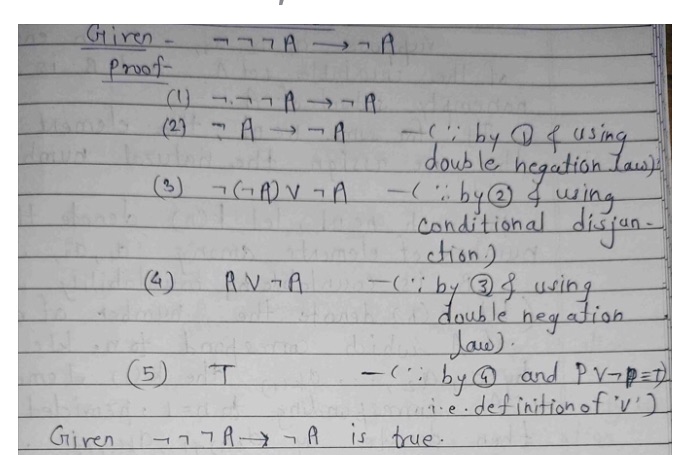 Given - ¬¬¬A → ¬A
Proof-
(1) ¬¬¬A → ¬A
(2) ¬A → ¬A —(∵ by ① & using
double negation law)
(3) ¬(¬A) ∨ ¬A —(∵ by ② & using
conditional disjun-
ction.)
(4) A ∨ ¬A —(∵ by ③ & using
double negation
law).
(5) T —(∵ by ④ and P∨¬P=T)
i.e. definition of '∨')
Given ¬¬¬A → ¬A is true.